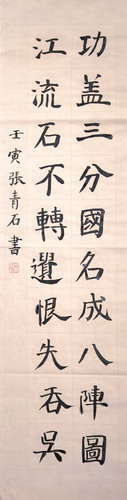 功盖三分國名成八陣圖
江流石不轉遺恨失吞吳
壬寅張青石書